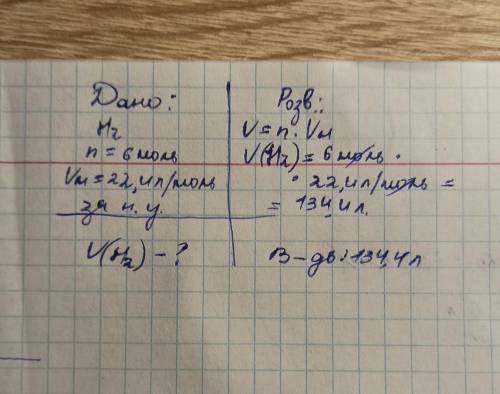 Дано:
H2
n = 6 моль
Vм = 22,4 л/моль
за н. у.
V(H2) - ?
Розв.:
V = n · Vм
V(H2) = 6 моль ·
· 22,4 л/моль =
= 134,4 л.
В-дь: 134,4 л